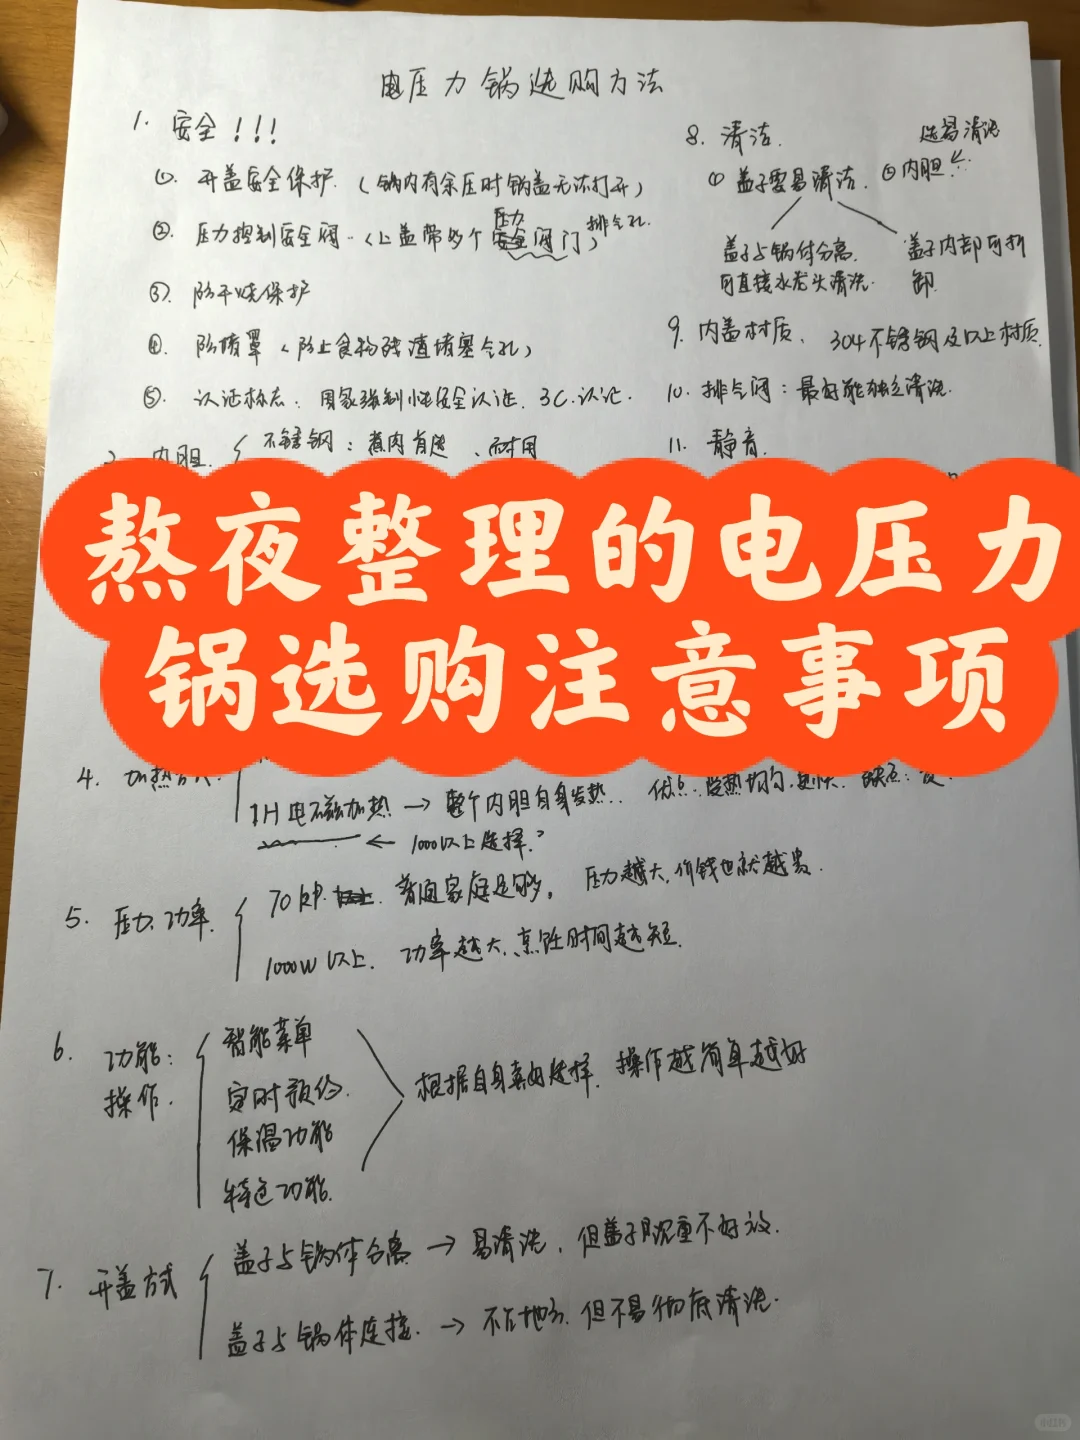 电压力锅选购方法
1. 安全!!!
①. 开盖安全保护.(锅内有余压时锅盖无法打开)
②. 压力控制安全阀.(上盖带多个压力阀门)排气孔.
③. 防干烧保护
④. 防喷罩(防止食物残渣堵塞气孔)
⑤. 认证标志:国家强制性安全认证. 3C.认证.
2. 内胆. 不锈钢:煮肉首选、耐用
熬夜整理的电压力
锅选购注意事项
4. 加热方式
IH电磁加热→整个内胆自身发热. 优点:受热均匀.更快. 缺点:贵.
← 1000以上选择?
5. 压力.功率. 70kP. 普通家庭足够. 压力越大,价钱也就越贵.
1000W以上. 功率越大,烹饪时间越短.
6. 功能: 智能菜单
操作. 定时预约.
保温功能
特色功能.
根据自身喜好选择. 操作越简单越好
7. 开盖方式 盖子与锅体分离→易清洗,但盖子沉重不好放.
盖子与锅体连接.→不占地方.但不易彻底清洗.
8. 清洁.
①盖子要易清洁. ②内胆 选易清洗
盖子与锅体分离.
可直接水龙头清洗.
盖子内部可拆
卸.
9. 内盖材质、304不锈钢及以上材质.
10. 排气阀:最好能独立清洗.
11. 静音.